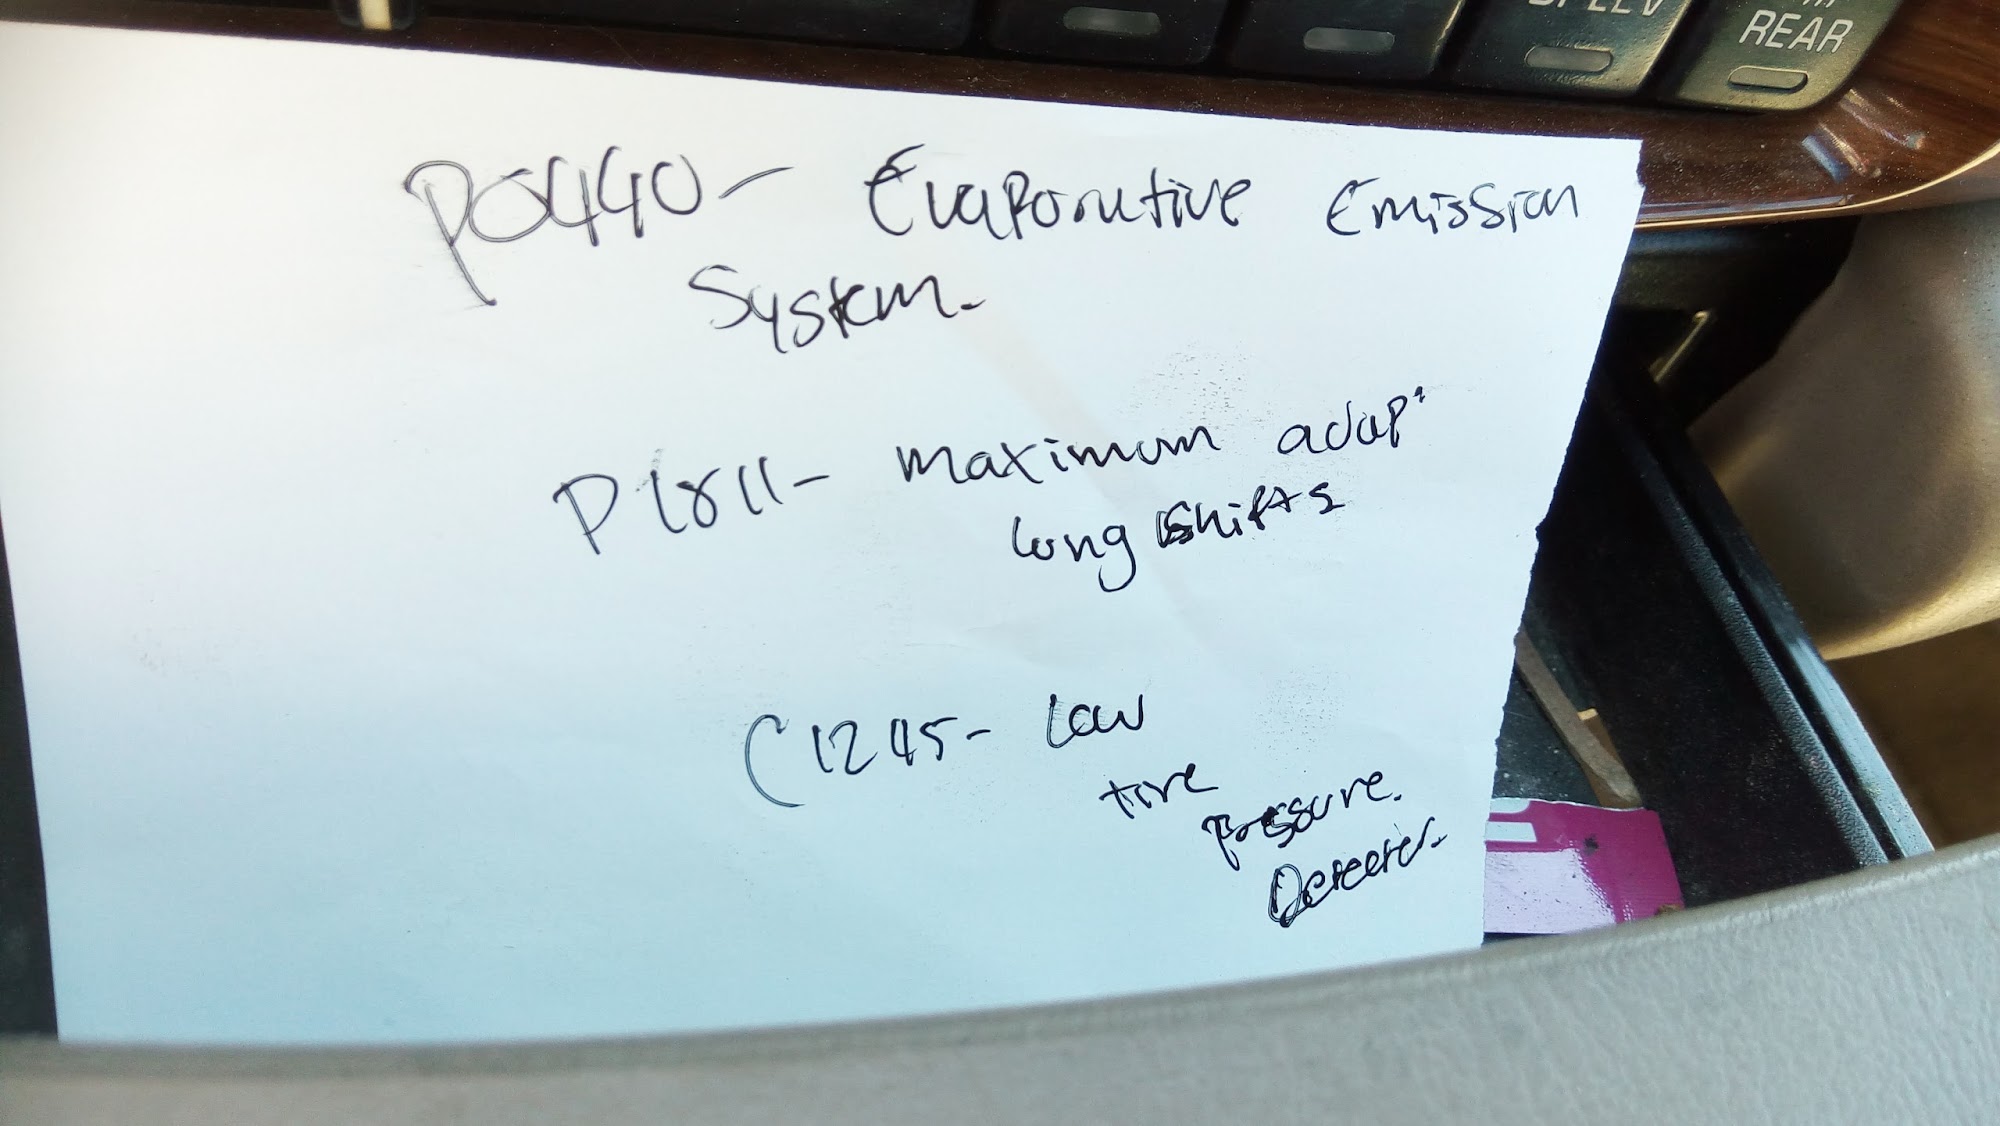 REAR
P0440- Evaporative Emission
System.
P1811- maximum adap.
long shifts
C1245- Low
tire
pressure.
Detecter.